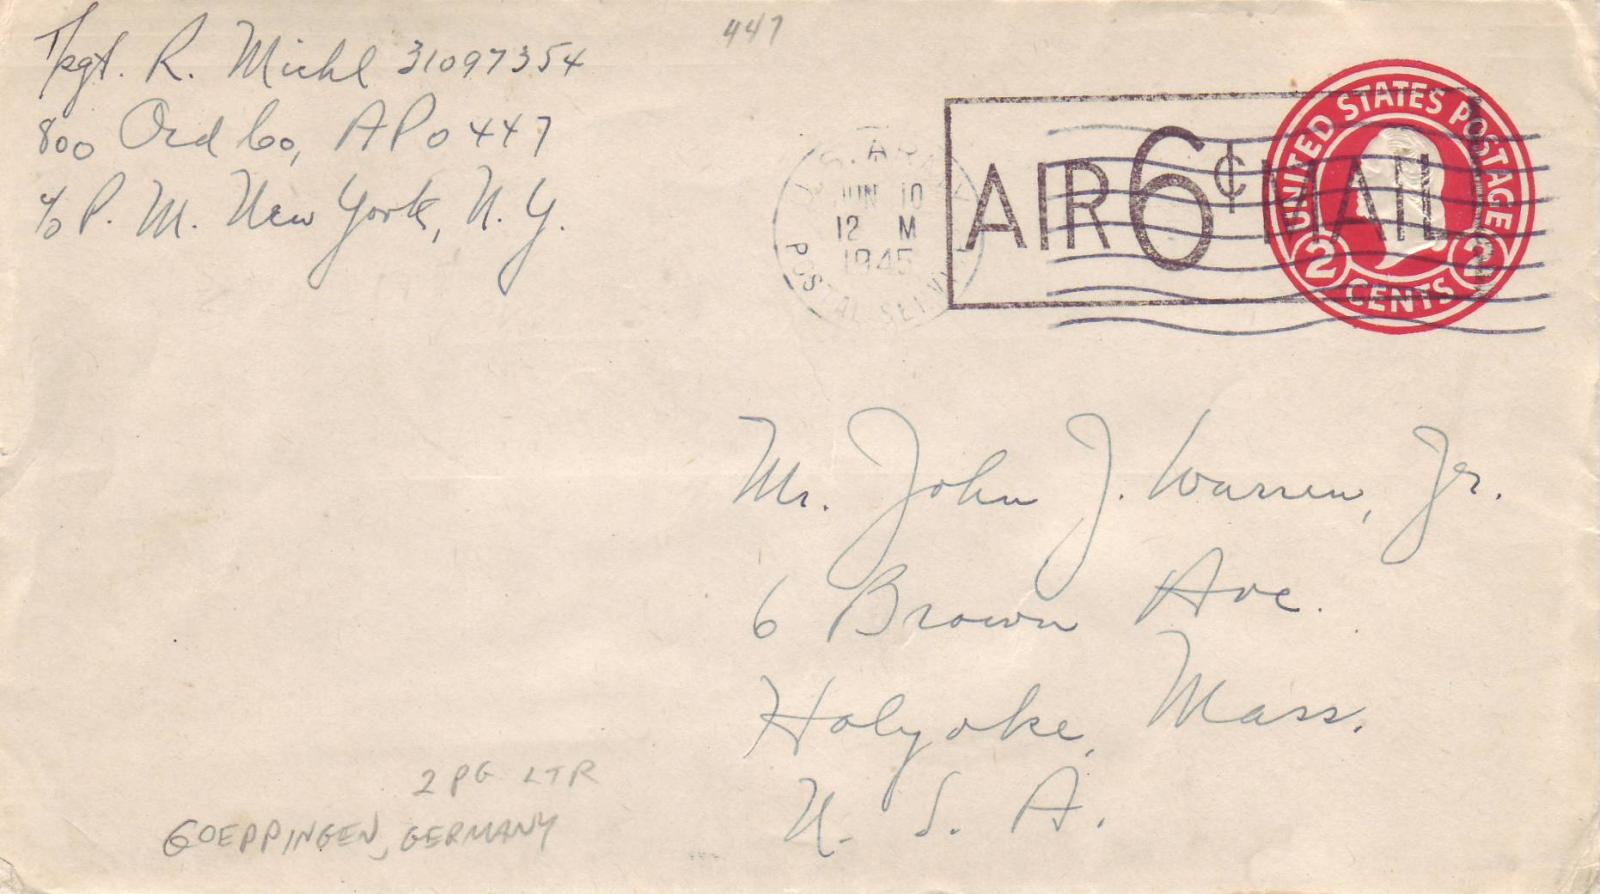 447
T/Sgt. R. Michl 31097354
800 Ord Co, APO 447
c/o P. M. New York, N. Y.
U.S. ARMY
JUN 10
12 M
1945
POSTAL SERVICE
AIR 6¢ MAIL
UNITED STATES POSTAGE
2 2
CENTS
Mr. John J. Warren, Jr.
6 Brown Ave.
Holyoke, Mass.
U. S. A.
2 PG LTR
GOEPPINGEN, GERMANY